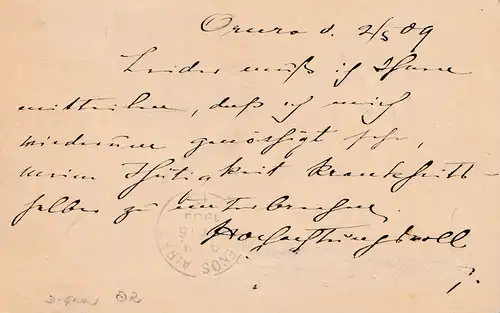 Oruro d. 2/5 09
Leider muß ich Ihnen
mitteilen, daß ich mich
wiederum genöthigt sehe,
meine Thätigkeit krankheits-
halber zu unterbrechen.
Hochachtungsvoll